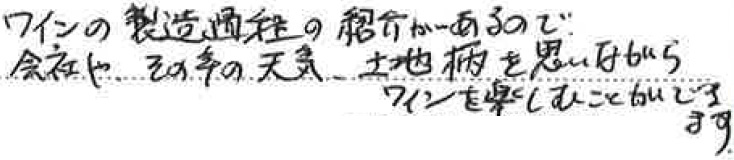 ワインの製造過程の紹介があるので
会社や、その年の天気、土地柄を思いながら
ワインを楽しむことができ
ます。